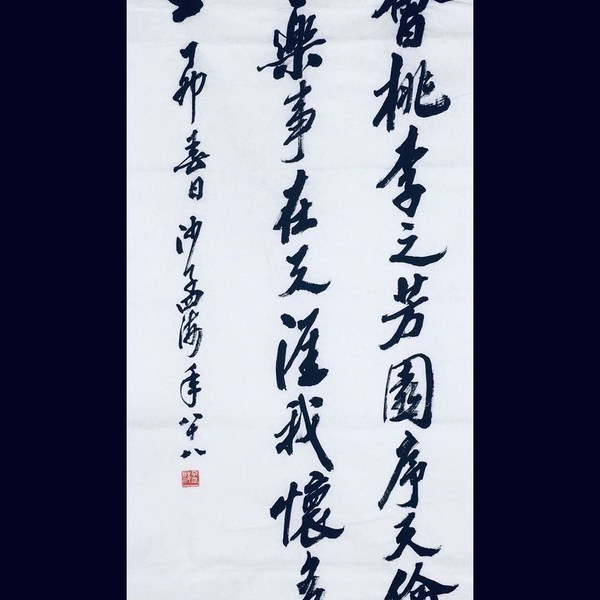 會桃李之芳園序天倫
樂事在天涯我懷
丁卯春日沙孟海年八十八